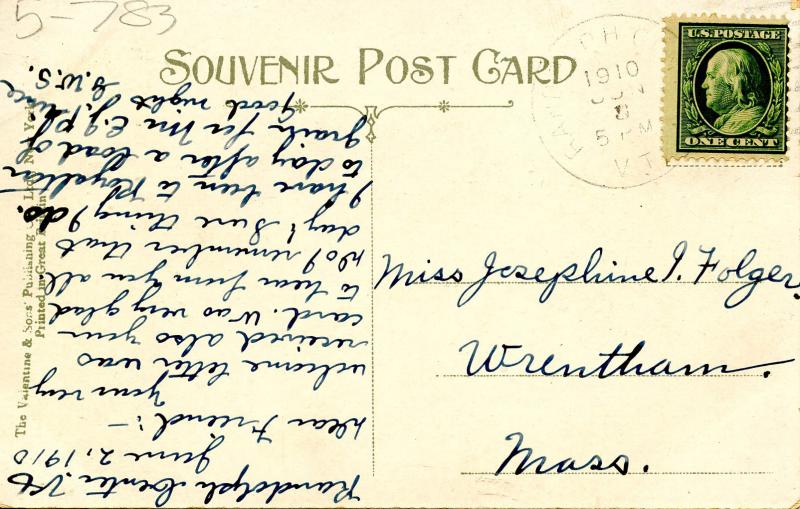 5-783
SOUVENIR POST CARD
RANDOLPH C
1910
JUN
3
5 PM
VT
U.S. POSTAGE
ONE CENT
Miss Josephine I. Folger,
Wrentham.
Mass.
Randolph Center, Vt
June 2, 1910
Dear Friend:-
Your very
welcome letter was
received also your
card. Was very glad
to hear from you all
do I remember that
day? Sure thing I do.
I have been to Royalton
to day after a load of
grain for Mr. E. J.
Good night
G.W.S.
The Valentine & Sons' Publishing Co. Ltd. New York
Printed in Great Britain